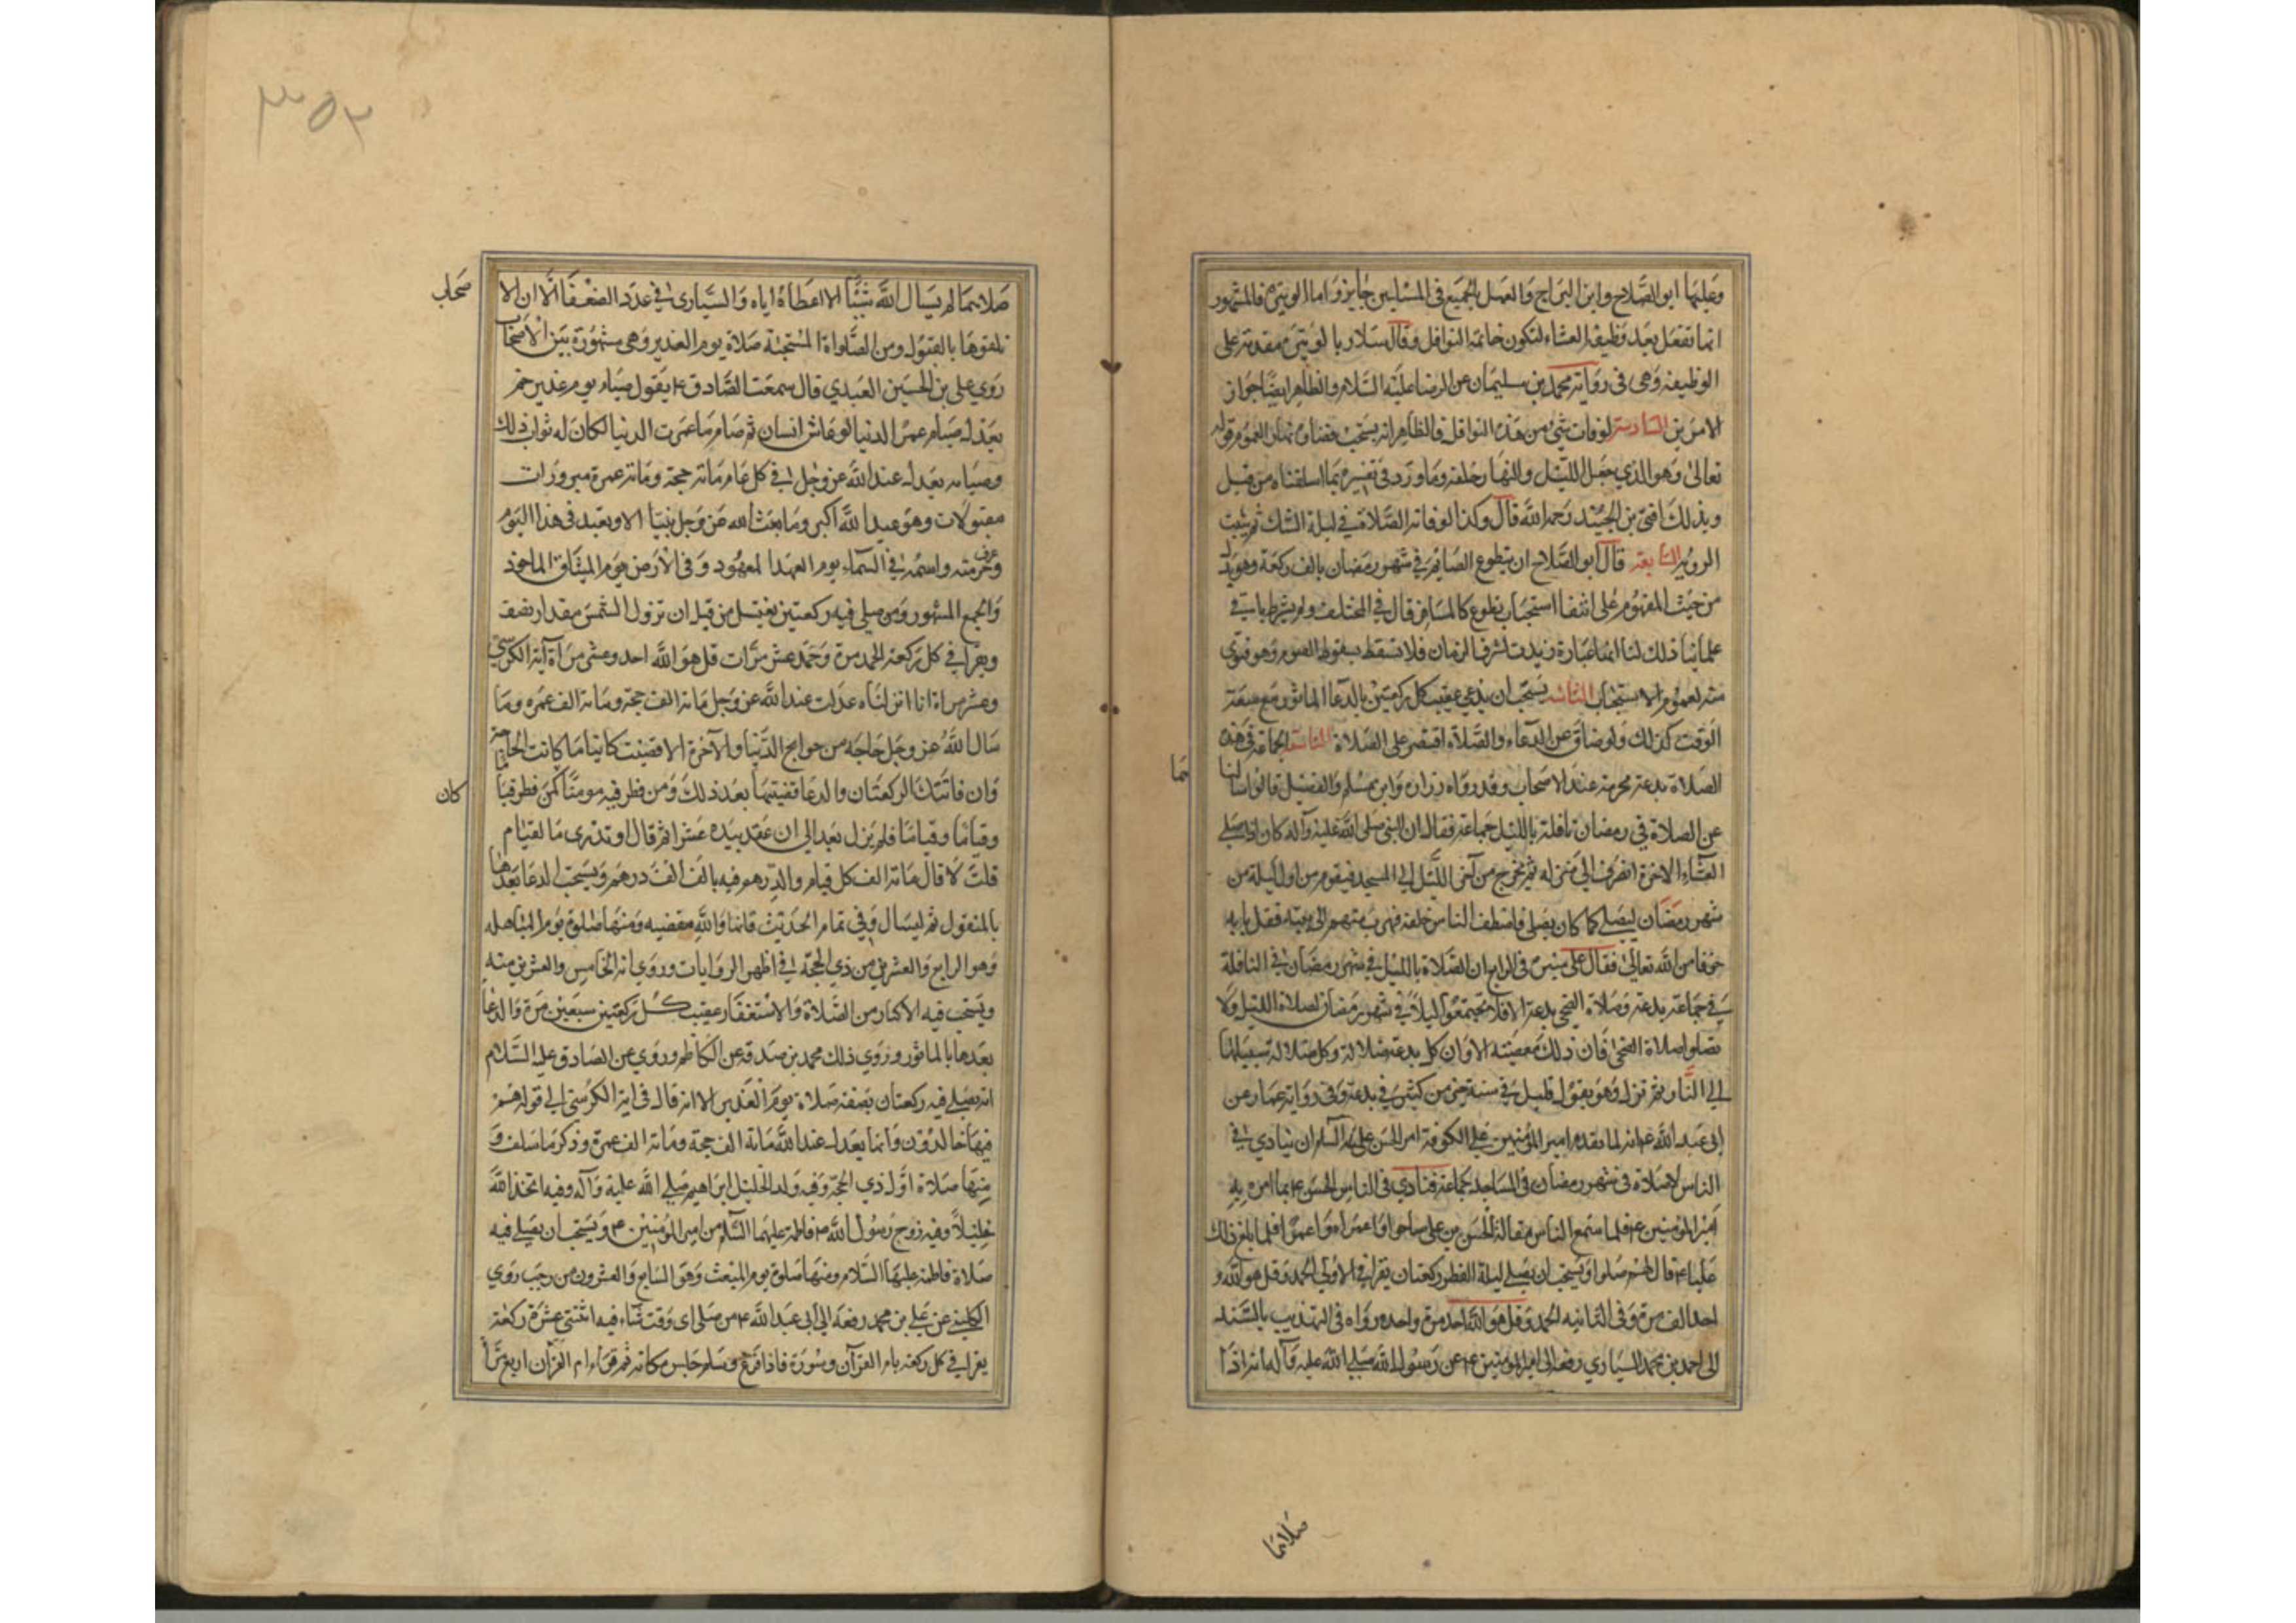 وعليها ابو الصلاح وابن البراج والعمل بالجميع في المسئلتين جايز واما الوتيرة فالمشهور
انما تفعل بعد وظيفة العشاء لتكون خاتمة النوافل وقال سلار بالوتيرة مقدمة على
الوظيفة وهى فى رواية محمد بن سليمان عن الرضا عليه السلام والظاهر ايضا جواز
الامرين السادسة لوفات شئ من هذه النوافل فالظاهر انه يستحب قضاؤه نهارا لعموم قوله
تعالى وهو الذي جعل الليل والنهار خلفة وما ورد فى تفسيره بما اسلفناه من قبل
وبذلك افتى بن الجنيد رحمه الله قال وكذا لو فاته الصلاة في ليلة الشك ثم يثبت
الروية السابعة قال ابو الصلاح ان يتطوع الصايم في شهر رمضان بالف ركعة وهو يدل
من حيث المفهوم على انتفا استحباب تطوع كالمسافر قال في المختلف ولم يشرط باقي
علمائنا ذلك لنا انها عبارة زيدت لشرف الزمان فلا تسقط بسقوط الصوم وهو فتوى
منه لعموم الاستحباب الثامنة يستحب ان يدعى عقيب كل ركعتين بالدعا الماثور مع سعة
الوقت كذلك ولو ضاق عن الدعاء والصلاة اقتصر على الصلاة التاسعة الجماعة فى هذه
الصلاة بدعة محرمة عند الاصحاب وقد رواه زرارة وابن مسلم والفضيل قالوا سالنا
هما
عن الصلاة في رمضان نافلة بالليل جماعة فقالا ان النبى صلى الله عليه وآله كان اذا صلى
العشاء الاخرة انصرف الى منزله ثم يخرج من آخر الليل الى المسجد فيقوم من اول ليلة من
شهر رمضان ليصلي كما كان يصلى فاصطف الناس خلفه فهرب منهم الى بيته ففعل بابه
خوفا من الله تعالى فقال على منبره فى الرابع ان الصلاة بالليل في شهر رمضان في النافلة
في جماعة بدعة وصلاة الضحى بدعة الا فلا تجتمعوا ليلا في شهر رمضان لصلاة الليل ولا
تصلوا صلاة الضحى فان ذلك معصية الا وان كل بدعة ضلالة وكل ضلالة سبيلها
الى النار ثم نزل وهو يقول قليل في سنة خير من كثير في بدعة وفى رواية عمار عن
ابى عبد الله ع انه لما تقدم امير المؤمنين على الكوفة امر الحسن عليه السلم ان ينادي في
الناس لا صلاة فى شهر رمضان فى المساجد جماعة فنادي فى الناس الحسن ع بما امره به
امير المؤمنين ع فلما سمع الناس مقالة الحسن بن على صاحوا واعمراه واعمراه فلما بلغ ذلك
عليا ع قال لهم صلوا ويستحب ان يصلى ليلة الفطر ركعتان يقرا في الاولى الحمد وقل هو الله
احد الف مرة وفى الثانيه الحمد وقل هو الله احد مرة واحده رواه فى التهذيب بالسند
الى احمد بن محمد السياري رفعه الى امير المومنين ع عن رسول الله صلى الله عليه وآله انه اذا
صلاتهما
٣٥٢
صلاتهما لم يسال الله شيئا الا اعطاه اياه والسياري في عدد الضعفا الا ان الا
صحاب
تلقوها بالقبول ومن الصلواة المستحبة صلاة يوم الغدير وهى مشهورة بين الاصحاب
روي على بن الحسين العبدي قال سمعت الصادق ع يقول صيام يوم غدير خم
يعدل صيام عمر الدنيا لو عاش انسان ثم صام ما عمرت الدنيا لكان له ثواب ذلك
وصيامه يعدل عند الله عز وجل في كل عام مائة حجة ومائة عمرة مبرورات
مقبولات وهو عيد الله اكبر وما بعث الله عز وجل نبيا الا وتعيد فى هذا اليوم
وعرف حرمته واسمه في السماء يوم العهد المعهود وفى الارض يوم الميثاق الماخوذ
والجمع المشهود ومن صلى فيه ركعتين يغتسل من قبل ان تزول الشمس مقدار نصف
ويقرا في كل ركعة الحمد مرة وعشر مرات قل هو الله احد وعشر مراة آية الكرسي
وعشر مراة انا انزلناه عدلت عند الله عز وجل مائة الف حجة ومائة الف عمره وما
سال الله عز وجل حاجة من حوايج الدنيا والآخرة الا قضيت كائنا ما كانت الحاجة
وان فاتتك الركعتان والدعا قضيتها بعد ذلك ومن فطر فيه مومنا كمن فطر فياما
كان
وفياما وفياما فلم يزل يعد الى ان عقد بيده عشرا ثم قال او تدرى ما لفيام
قلت لا قال مائة الف كل فيام والدرهم فيه بالف الف درهم ويستحب الدعا بعدها
بالمنقول ثم ليسال وفي تمام الحديث قانها والله مقضيه ومنها صلوة يوم المباهله
وهو الرابع والعشرين من ذي الحجة في اظهر الروايات وروي انه الخامس والعشرين منه
ويستحب فيه الاكثار من الصلاة والاستغفار عقيب كل ركعتين سبعين مرة والدعا
بعدها بالماثور وروي ذلك محمد بن صدقة عن الكاظم وروي عن الصادق عليه السلام
انه يصلى فيه ركعتان بصفة صلاة يوم الغدير الا انه قال فى اية الكرسى الى قوله هم
فيها خالدون وانها يعدل عند الله مائة الف حجة ومائة الف عمرة وذكر ما سلف و
منها صلاة اول ذي الحجة وفيه ولد الخليل ابراهيم صلى الله عليه وآله وفيه اتخذ الله
خليلا وفيه زوج رسول الله ص فاطمة عليهما السلم من امير المؤمنين ع ويستحب ان يصلى فيه
صلاة فاطمة عليها السلام ومنها صلوة يوم المبعث وهو السابع والعشرون من رجب روي
الكلينى عن على بن محمد رفعه الى ابى عبد الله ع من صلى اى وقت شاء فيه اثنتى عشرة ركعة
يقرا في كل ركعة بام القرآن وسورة فاذا فرغ وسلم جلس مكانه ثم قراء ام القرآن اربع مرا